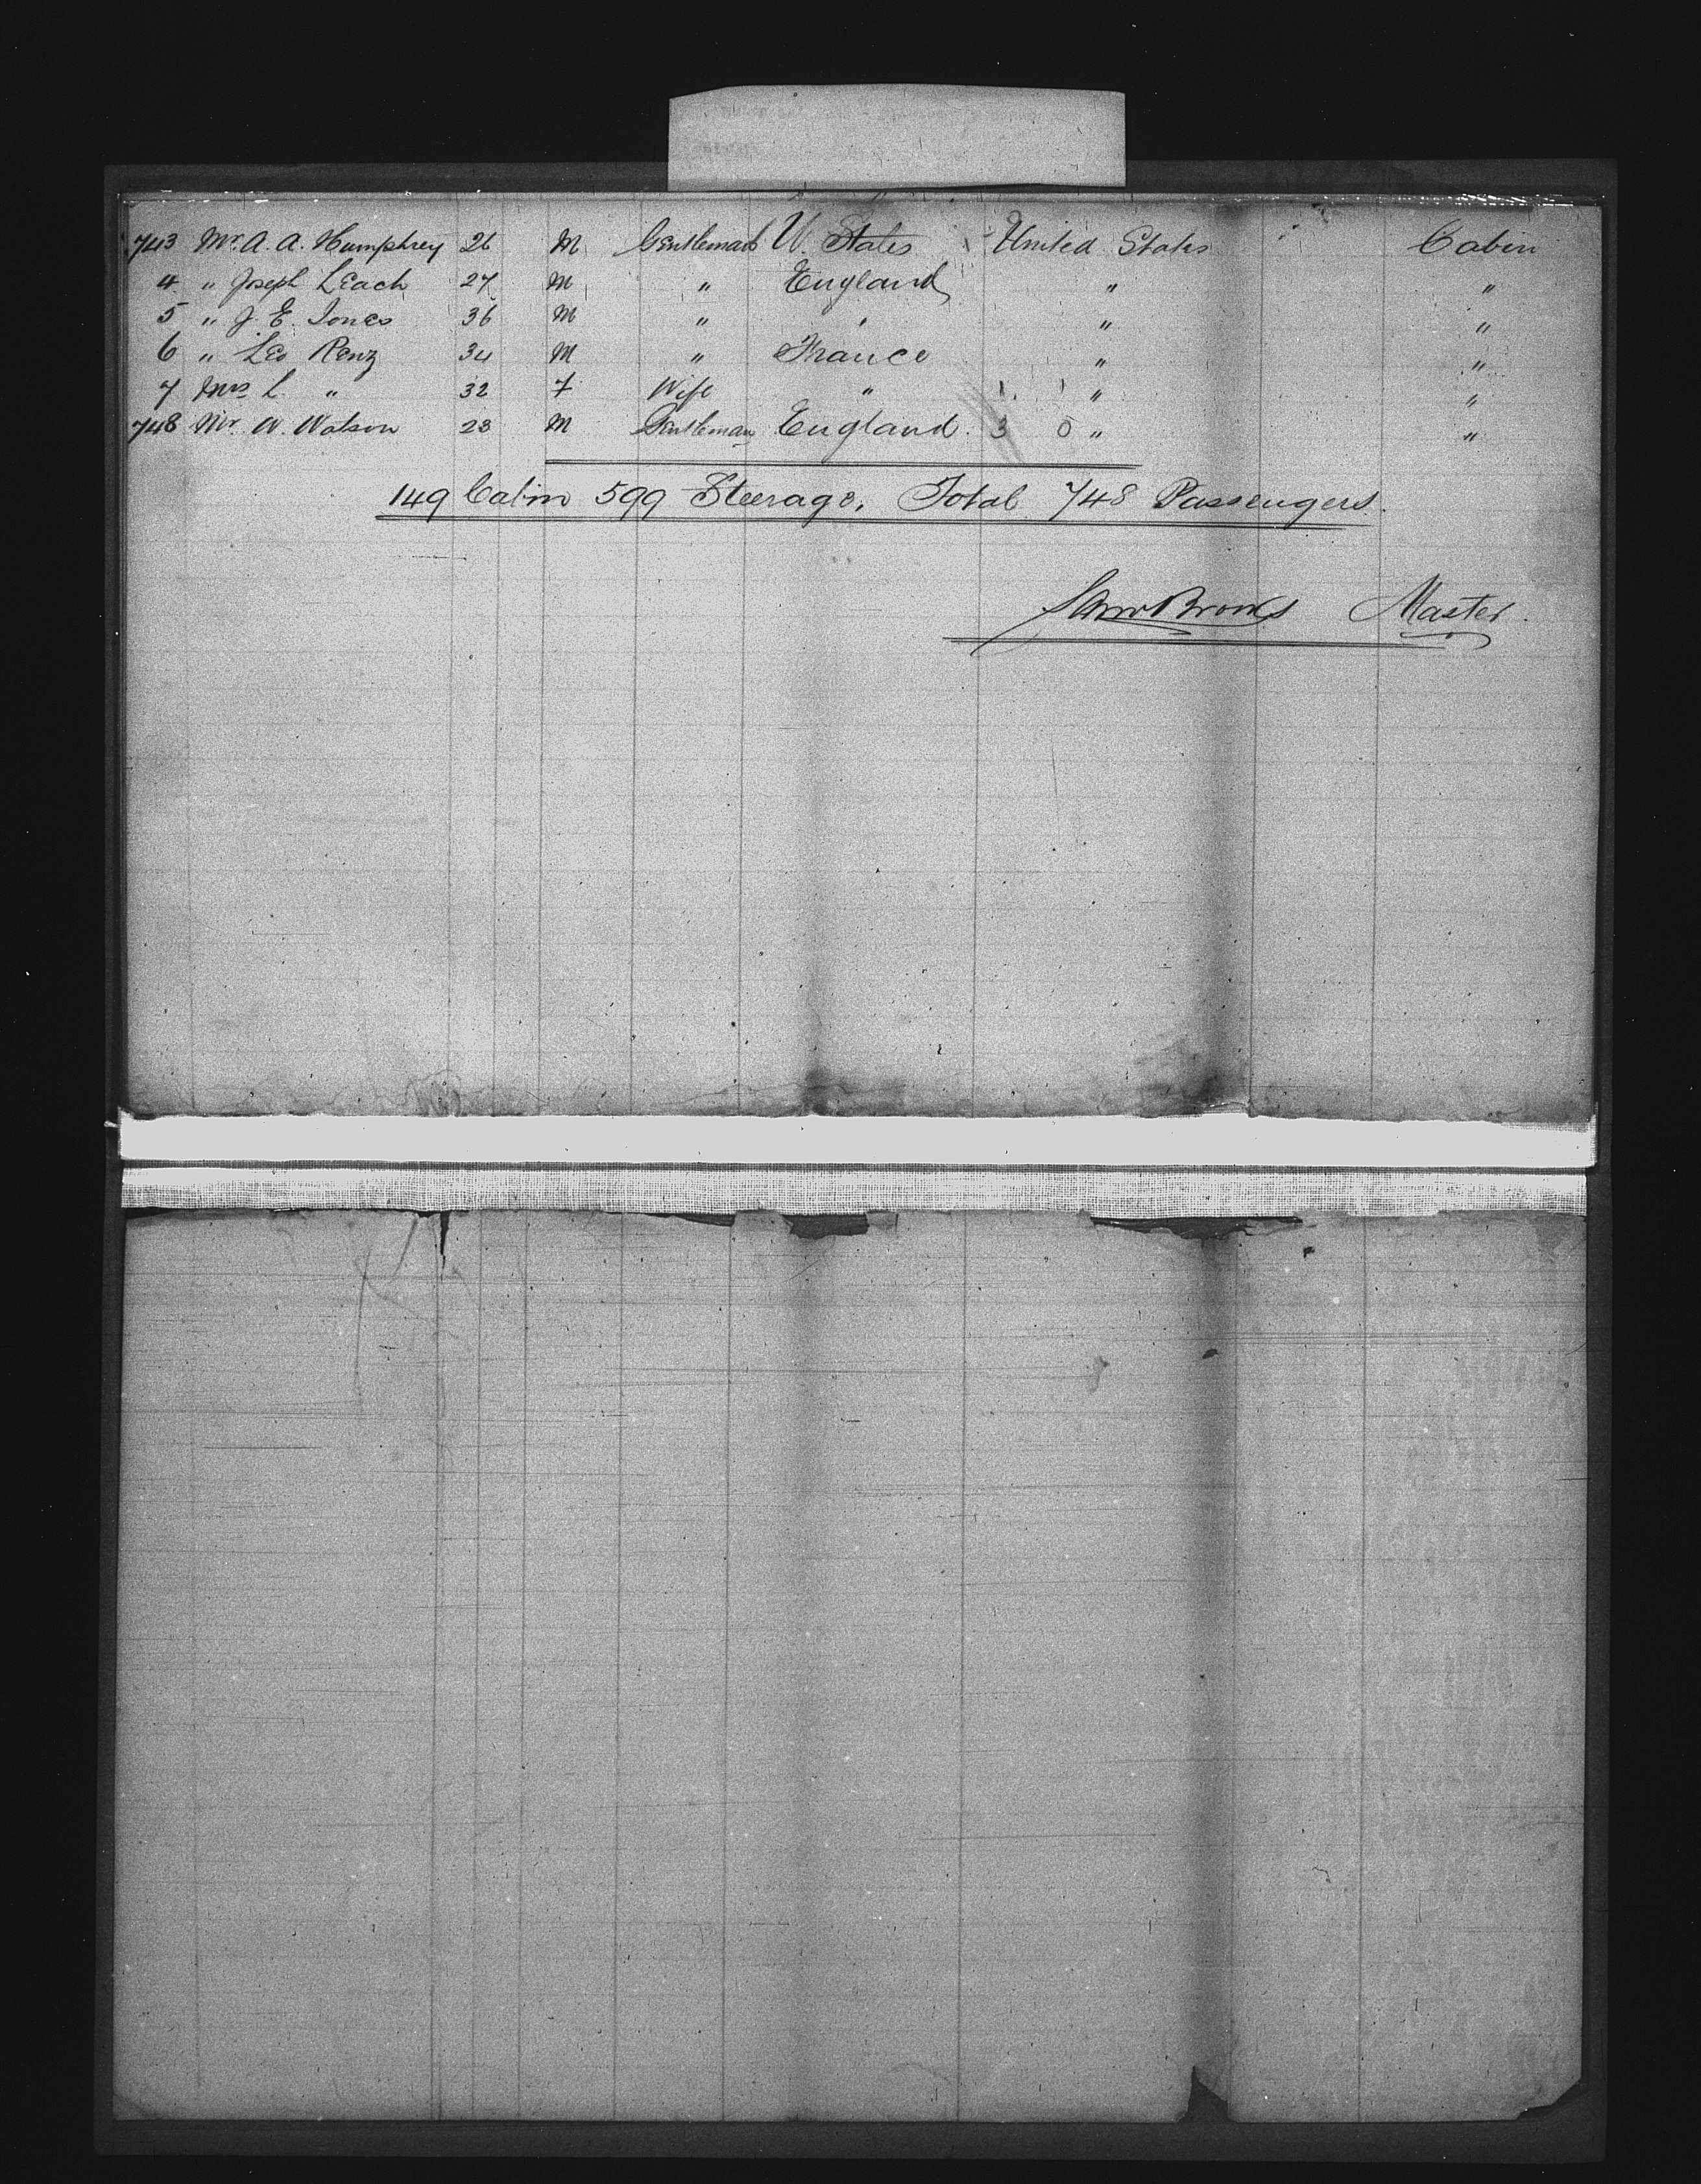 743 Mr. A. A. Humphrey 26 M Gentleman U. States United States Cabin
4 " Joseph Leach 27 M " England " "
5 " J. E. Jones 36 M " " " "
6 " Leo Renz 34 M " France " "
7 Mrs L. " 32 F Wife " 1 1 " "
748 Mr. W. Watson 23 M Gentleman England. 3 0 " "
149 Cabin 599 Steerage. Total 748 Passengers.
Saml Brooks Master.